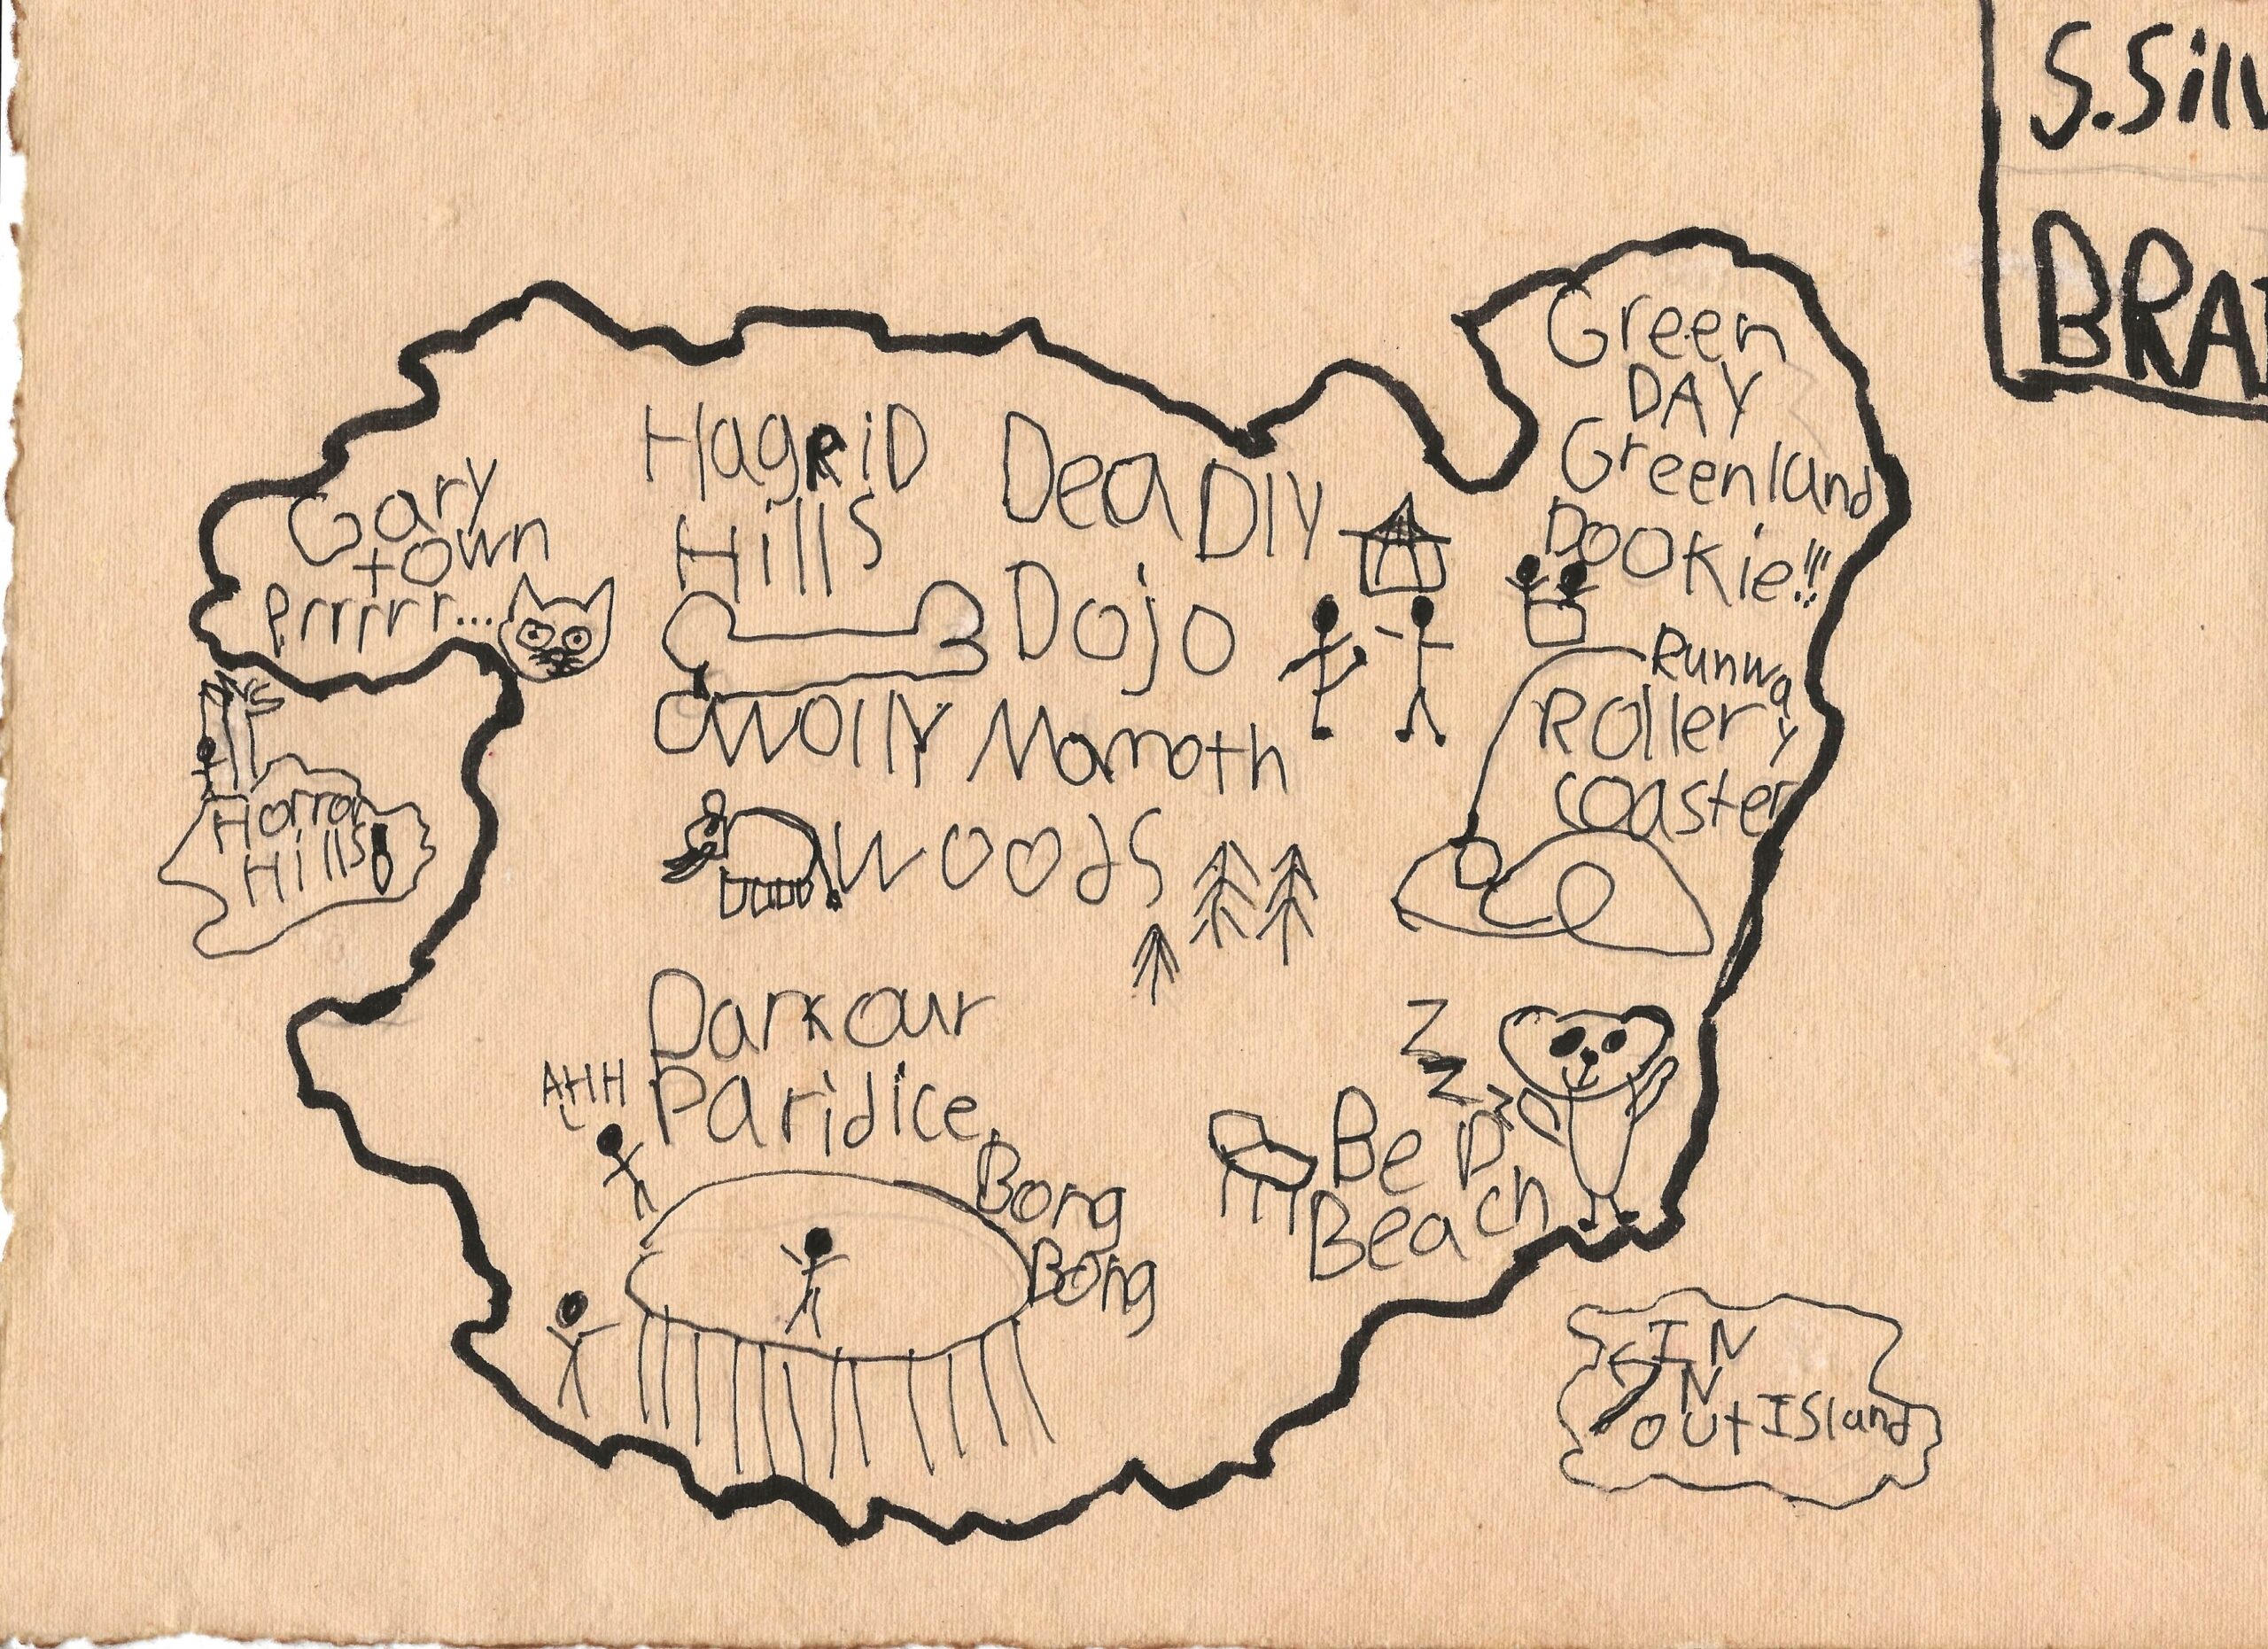 S.Sill
BRA
Green
DAY
Greenland
DOOKie!!!
HagRiD
Hills
DeaDly
Dojo
Gary
town
Prrrrr...
Runway
Roller
coaster
Wolly Mamoth
woods
Horror
Hills
Parkour
Paridice
AHH
Bong
Bong
Z
Z
Z
Bed
Beach
IN
N
OUt ISland